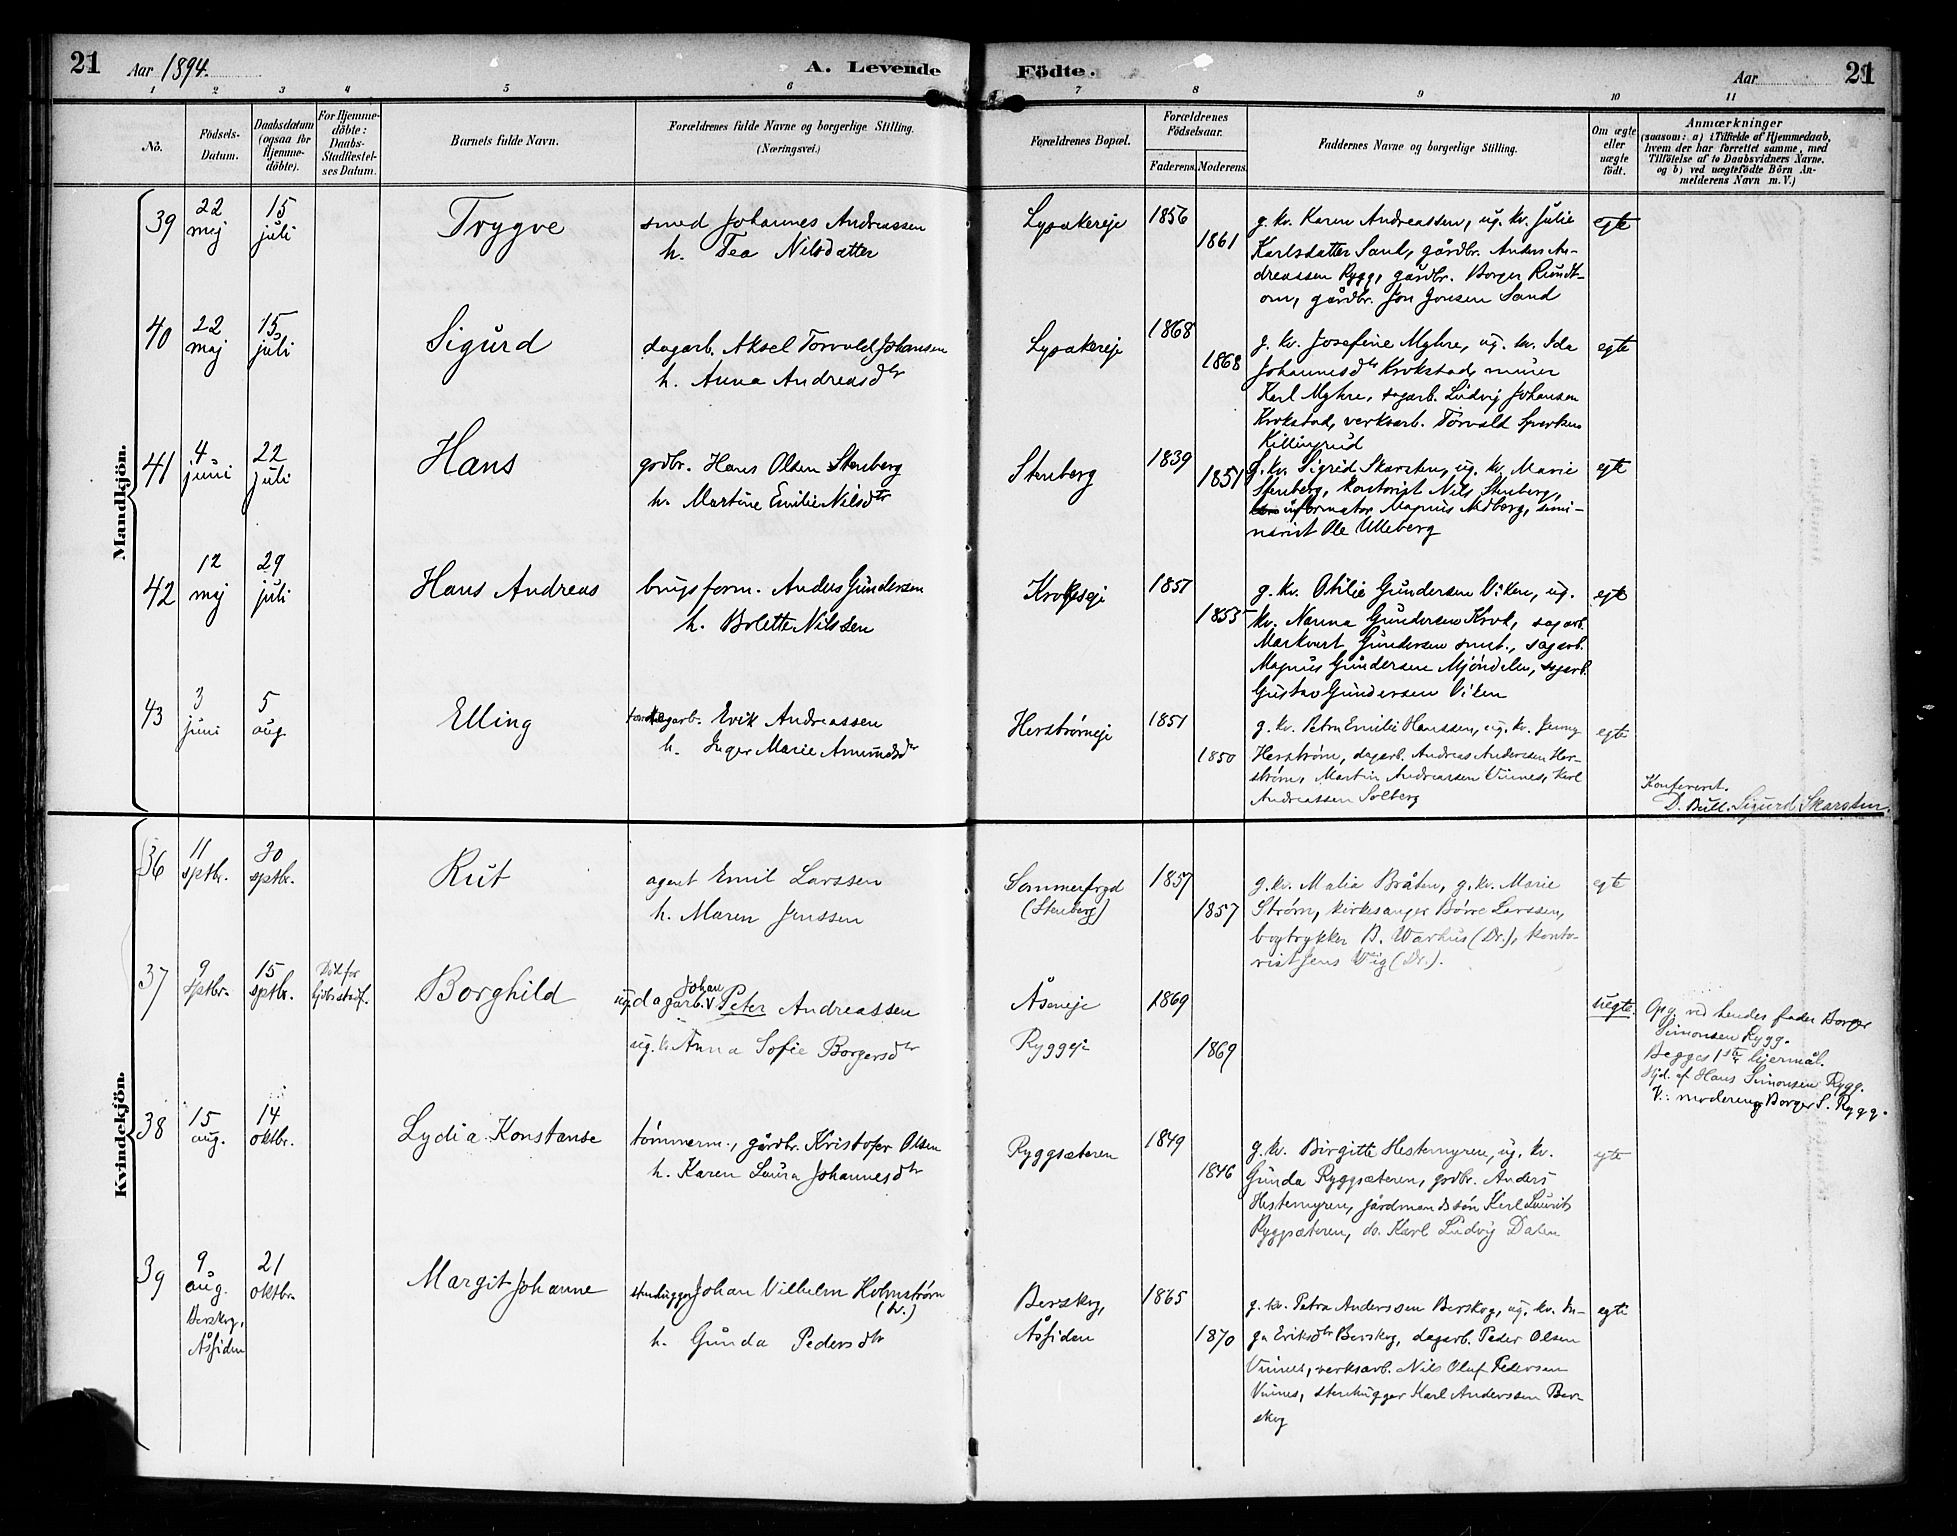 21 Aar 1894. A. Levende Födte. Aar 21
1 2 3 4 5 6 7 8 9 10 11
No.
Födsels-
Datum.
Daabsdatum
(ogsaa for
Hjemme-
döbte).
For Hjemme-
döbte:
Daabs-
Stadfæstel-
ses Datum.
Barnets fulde Navn.
Forældrenes fulde Navne og borgerlige Stilling.
(Næringsvei.)
Forældrenes Bopæl.
Forældrenes
Födselsaar.
Faderens. Moderens.
Faddernes Navne og borgerlige Stilling.
Om ægte
eller
uægte
födt.
Anmærkninger
(saasom: a) i Tilfælde af Hjemmedaab,
hvem der har forrettet samme, med
Tilföielse af to Daabsvidners Navne.
og b) ved uægtefödte Börn An-
melderens Navn m. V.)
Mandkjön.
39
22
maj
15
juli
Trygve
smed Johannes Andreassen
h. Tea Nilsdatter
Lysakereje
1856
1861
g. kv. Karen Andreassen, ug. kv. Julie
Karlsdatter Sand, gårdbr. Anders An-
dreassen Rygg, gårdbr. Borger Rundt-
om, gårdbr. Jon Jonsen Sand
egte
40
22
maj
15
juli
Sigurd
dagarb. Aksel Torvald Johansen
h. Anna Andreasdtr
Lysakereje
1868
1868
g. kv. Josefine Myhre, ug. kv. Ida
Johannesdtr Krokstad, murer
Karl Myhre, sagarb. Ludvig Johansen
Krokstad, verksarb. Torvald
Killingrud
egte
41
4
juni
22
juli
Hans
grdbr. Hans Olsen Stenberg
h. Martine Emilie Nilsdtr
Stenberg
1839
1851
g. kv. Sigrid Skarsten, ug. kv. Marie
Stenberg, kontorist Nils Stenberg,
informator Magnus Nedberg, semi-
narist Ole Ulleberg
egte
42
12
maj
29
juli
Hans Andreas
brugsform. Anders Gundersen
h. Bolette Nilssen
Krokseje
1851
1855
g. kv. Otilie Gundersen Viken, ug.
kv. Nanna Gundersen Krok, sagarb.
Markvart Gundersen smst., sagarb.
Magnus Gundersen Mjöndalen, sagarb.
Gustav Gundersen Viken
egte
43
3
juni
5
aug.
Elling
Erik Andreassen
h. Inger Marie Amundsdtr
Herstrømeje
1851
1850
g. kv. Petra Emilie Hanssen, ug. kv. Jenny
Herstrøm, dagarb. Andreas Andersen Her-
strøm, Martin Andreassen Vinnes, Karl
Andreassen Solberg
egte
Konfereret.
D. Bull. Sigurd Skarsten.
Kvindekjön.
36
11
sptbr.
30
sptbr.
Rut
agent Emil Larssen
h. Maren Jenssen
Sommerfryd
(Stenberg)
1857
1857
g. kv. Malia Bråten, g. kv. Marie
Strøm, kirkesanger Börre Larssen,
bogtrykker B. Warhus (Dr.), konto-
rist Jens Vig (Dr.).
egte
37
9
sptbr.
15
sptbr.
Död før
Borghild
Johan
ug. dagarb. v Peter Andreassen
ug. k. Anna Sofie Borgersdtr
Åseneje
Ryggeje
1869
1869
uegte.
Opg. ved hendes fader Borger
Simonsen Rygg.
Begges 1ste lejermål.
Hjd. af Hans Simonsen Rygg.
V.: moderen, Borger S. Rygg.
38
15
aug.
14
oktbr.
Lydia Konstanse
tömmerm., gårdbr. Kristofer Olsen
h. Karen Laura Johannesdtr
Ryggsæteren
1849
1846
g. kv. Birgitte Hestemyren, ug. kv.
Gunda Ryggsæteren, grdbr. Anders
Hestemyren, gårdmandssön Karl Laurits
Ryggsæteren, do. Karl Ludvig Dalen
egte
39
9
aug.
Berskog,
Åssiden
21
oktbr.
Margit Johanne
stenhugger Johan Vilhelm Holmstrøm
(sv.)
h. Gunda Pedersdtr
Berskog,
Åssiden
1865
1870
g. kv. Petra Anderssen Berskog, ug. kv. In-
ga Eriksdtr Berskog, dagarb. Peder Olsen
Vinnes, verksarb. Nils Oluf Pedersen
Vinnes, stenhugger Karl Anderssen Ber-
skog
egte